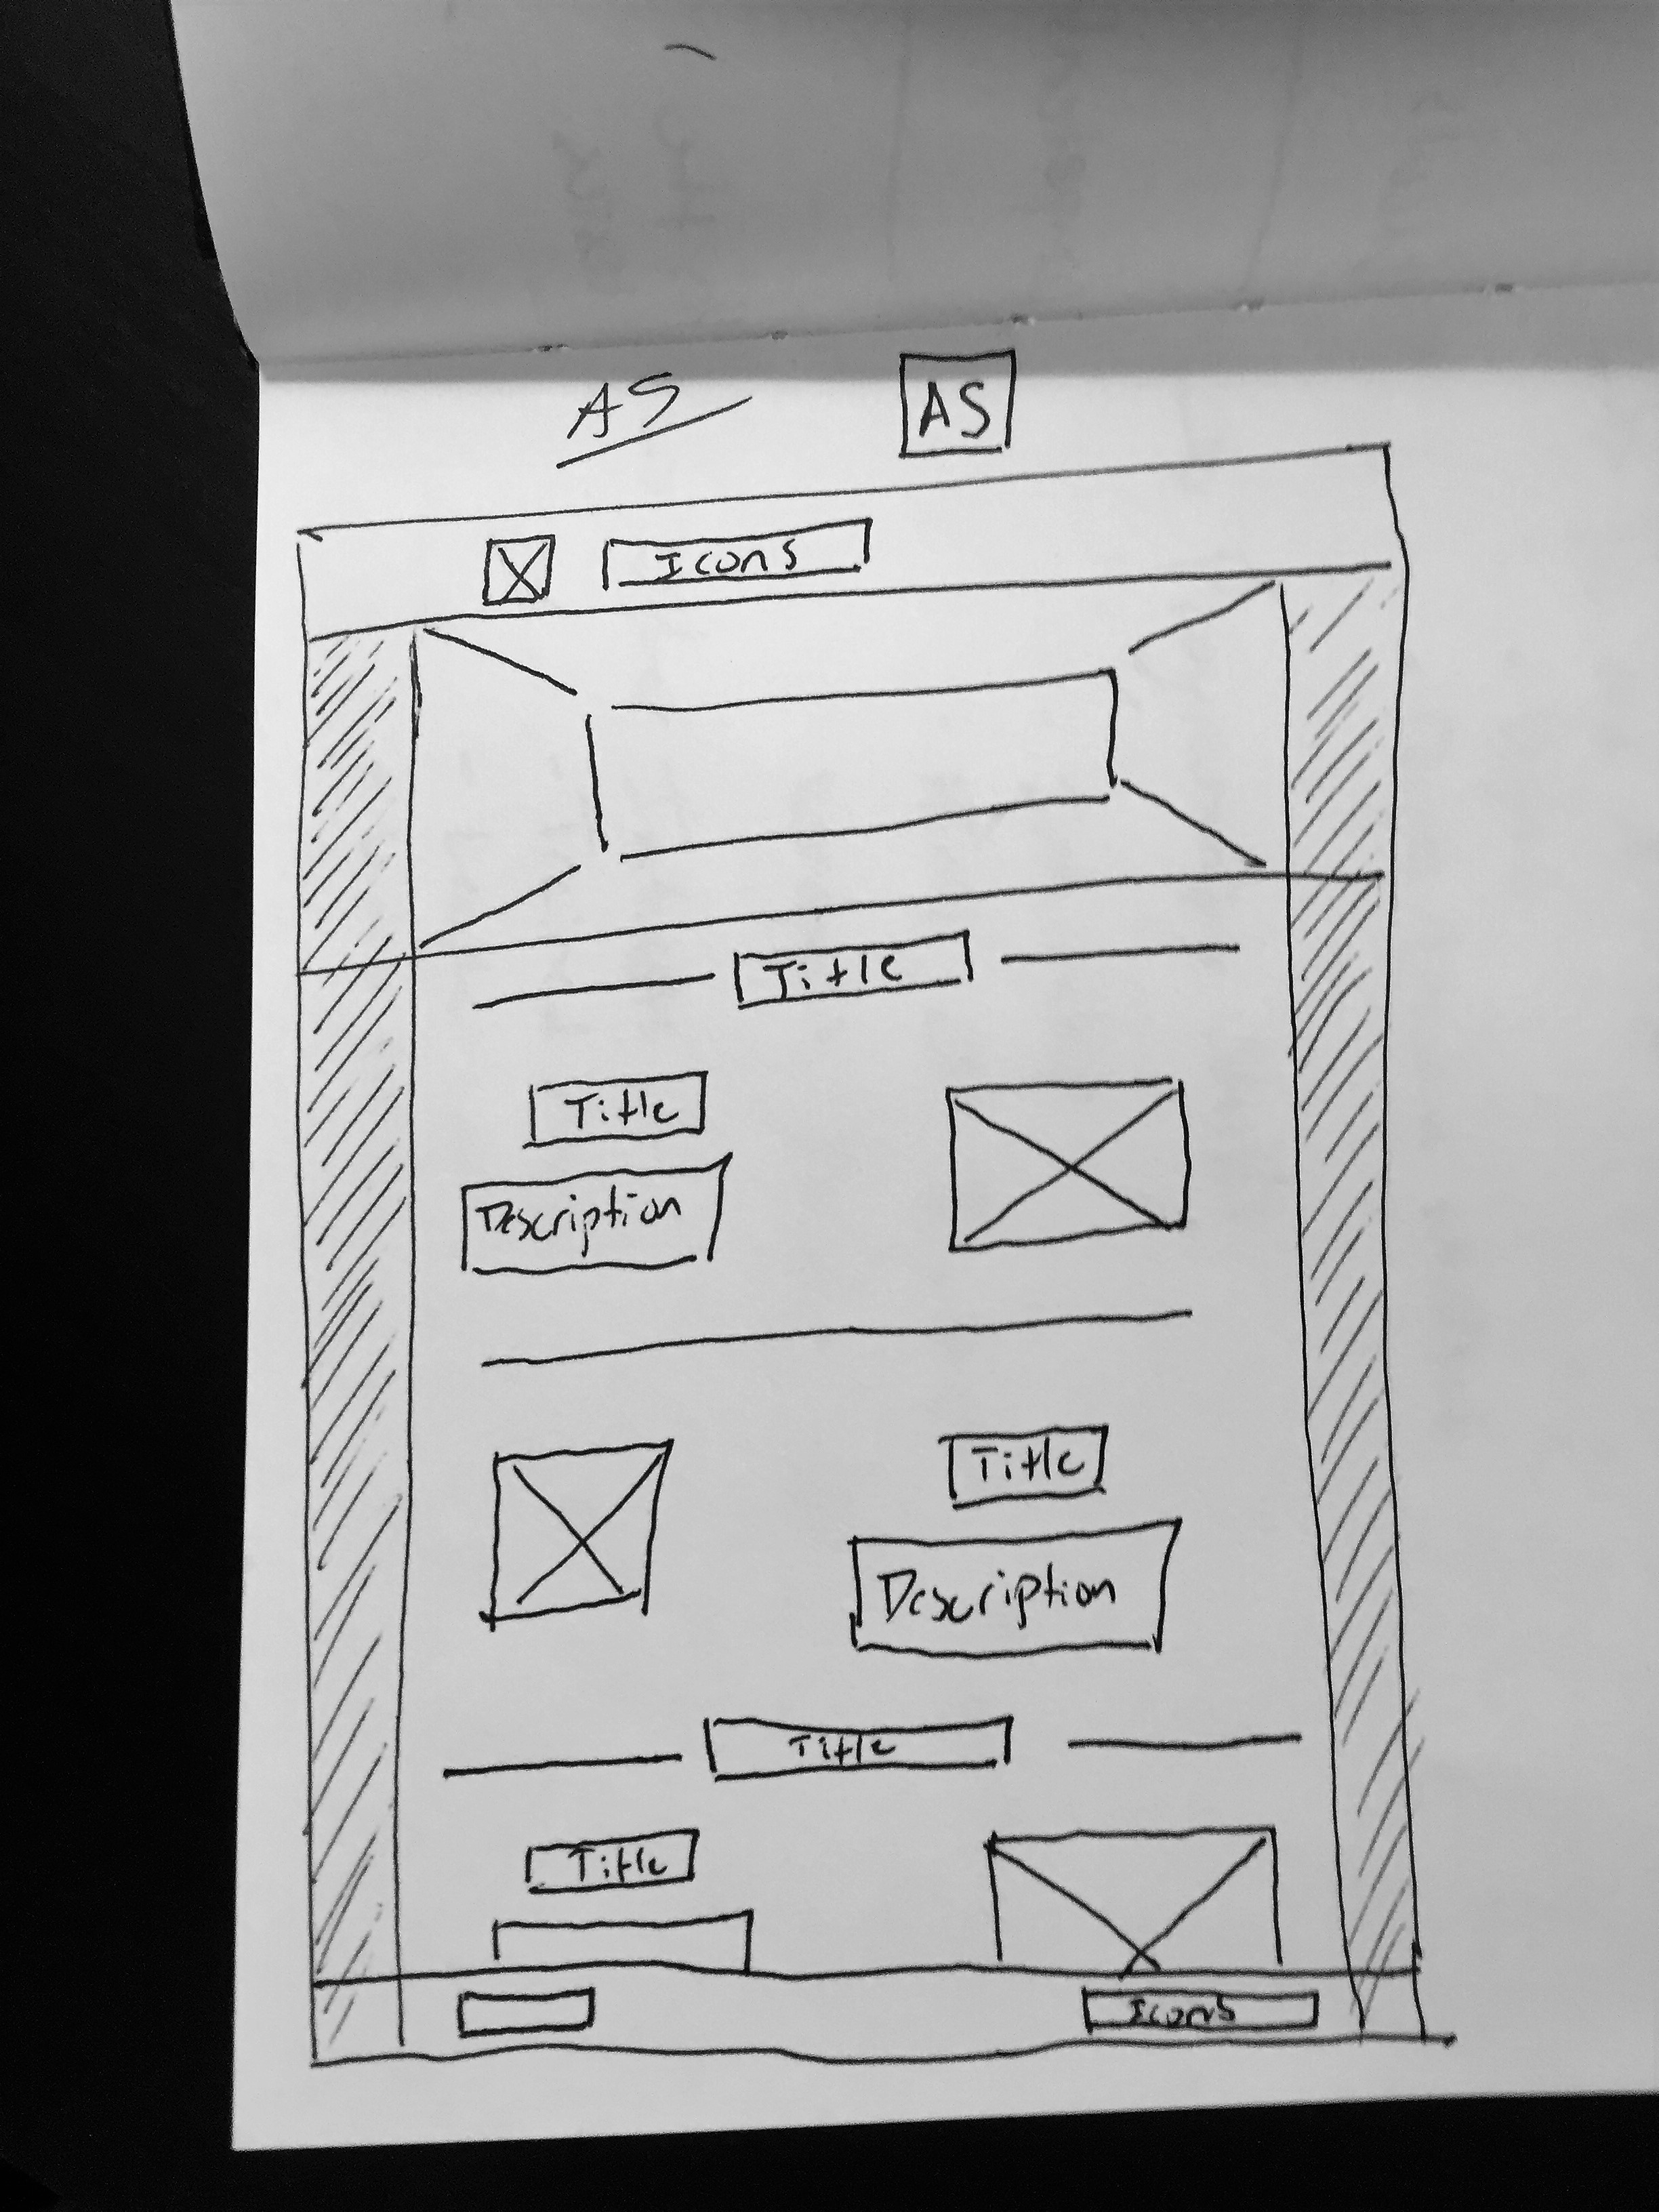 AS
AS
Icons
Title
Title
Description
Title
Description
Title
Title
Icons